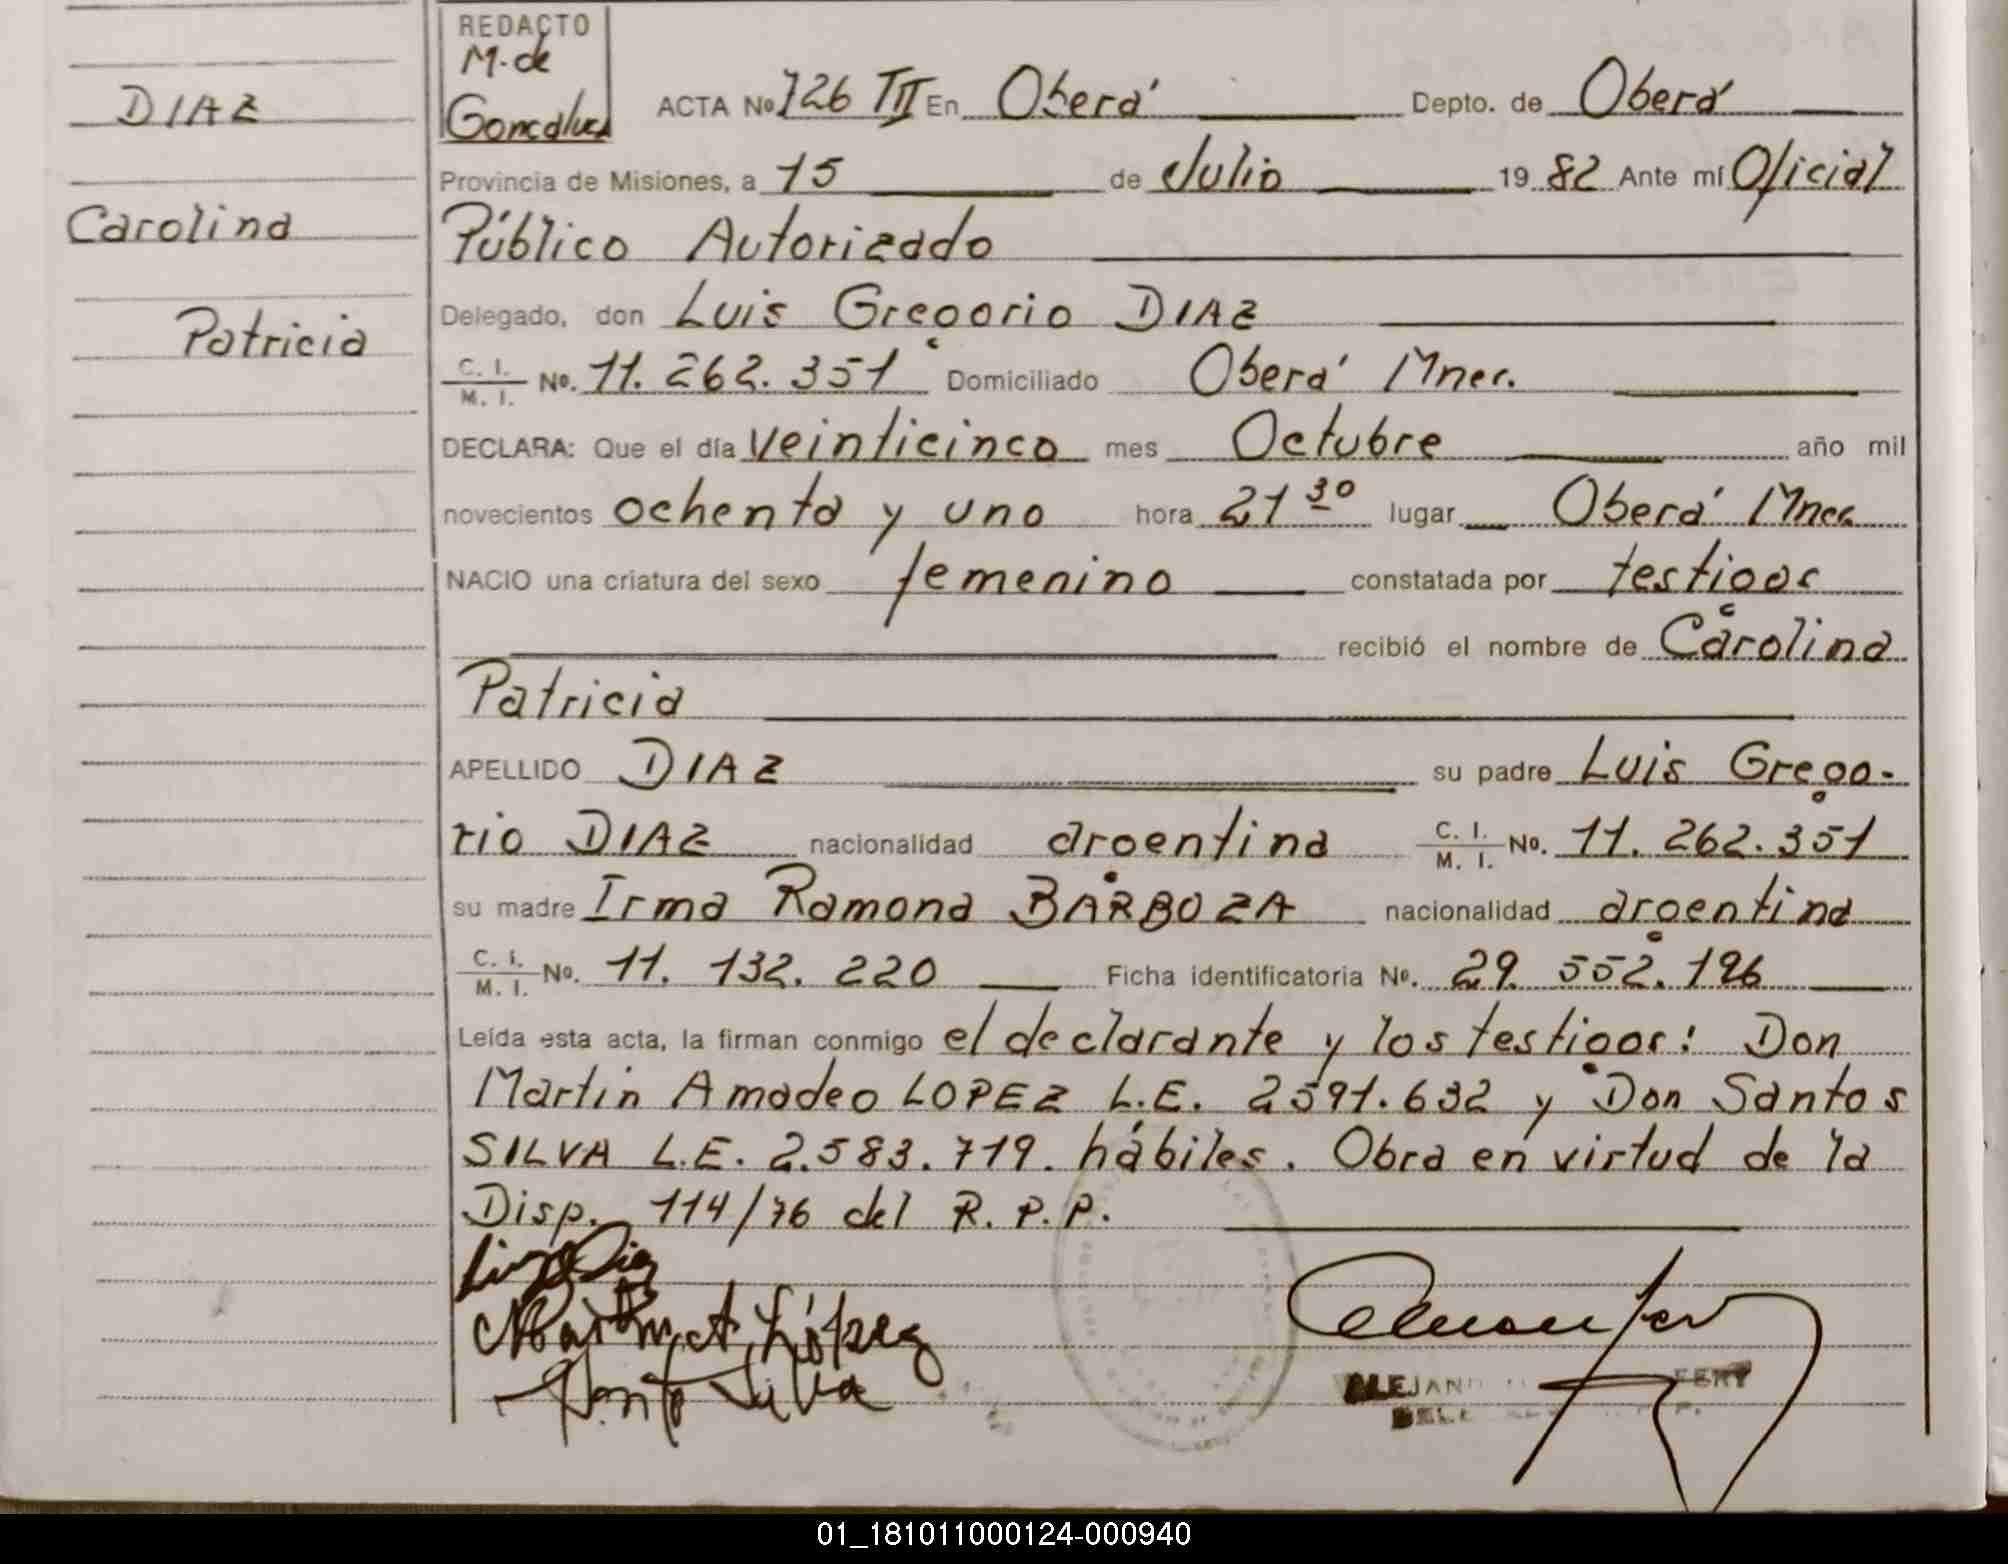 DIAZ
Carolina
Patricia
REDACTO
M. de
Goncalves
ACTA No 726 TIII En Oberá Depto. de Oberá
Provincia de Misiones, a 15 de Julio 19 82 Ante mí Oficial
Público Autorizado
Delegado, don Luis Gregorio DIAZ
C. I. / M. I. No. 11.262.351 Domiciliado Oberá Mnes.
DECLARA: Que el día veinticinco mes Octubre año mil
novecientos ochenta y uno hora 21 30 lugar Oberá Mnes
NACIO una criatura del sexo femenino constatada por testigos
recibió el nombre de Carolina
Patricia
APELLIDO DIAZ su padre Luis Grego-
rio DIAZ nacionalidad argentina C. I. / M. I. No. 11.262.351
su madre Irma Ramona BARBOZA nacionalidad argentina
C. I. / M. I. No. 11.132.220 Ficha identificatoria No. 29.552.196
Leída esta acta, la firman conmigo el declarante y los testigos: Don
Martin Amadeo LOPEZ L.E. 2591.632 y Don Santos
SILVA L.E. 2.583.719. hábiles. Obra en virtud de la
Disp. 114/76 del R.P.P.
Luis Diaz
Martin A. López
Santo Silva
01_181011000124-000940